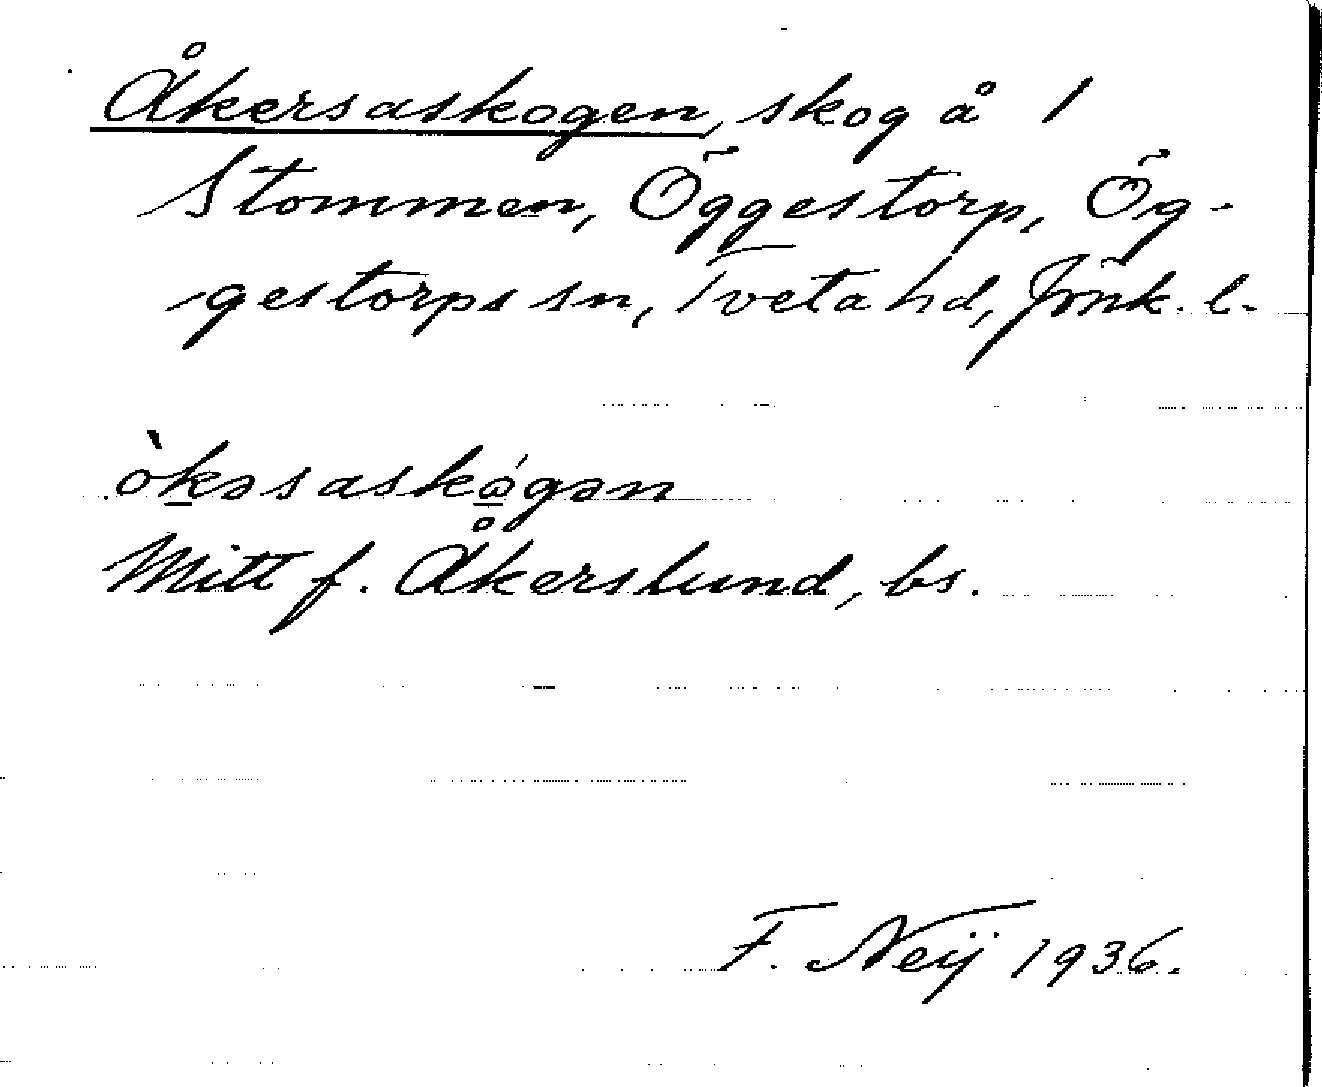 Åkersaskogen, skog å 1
Stommen, Öggestorp, Ög-
gestorps sn, Tveta hd, Jönk. l.
òkəsaskǿgən
Mitt f. Åkerslund, bs.
F. Neij 1936.